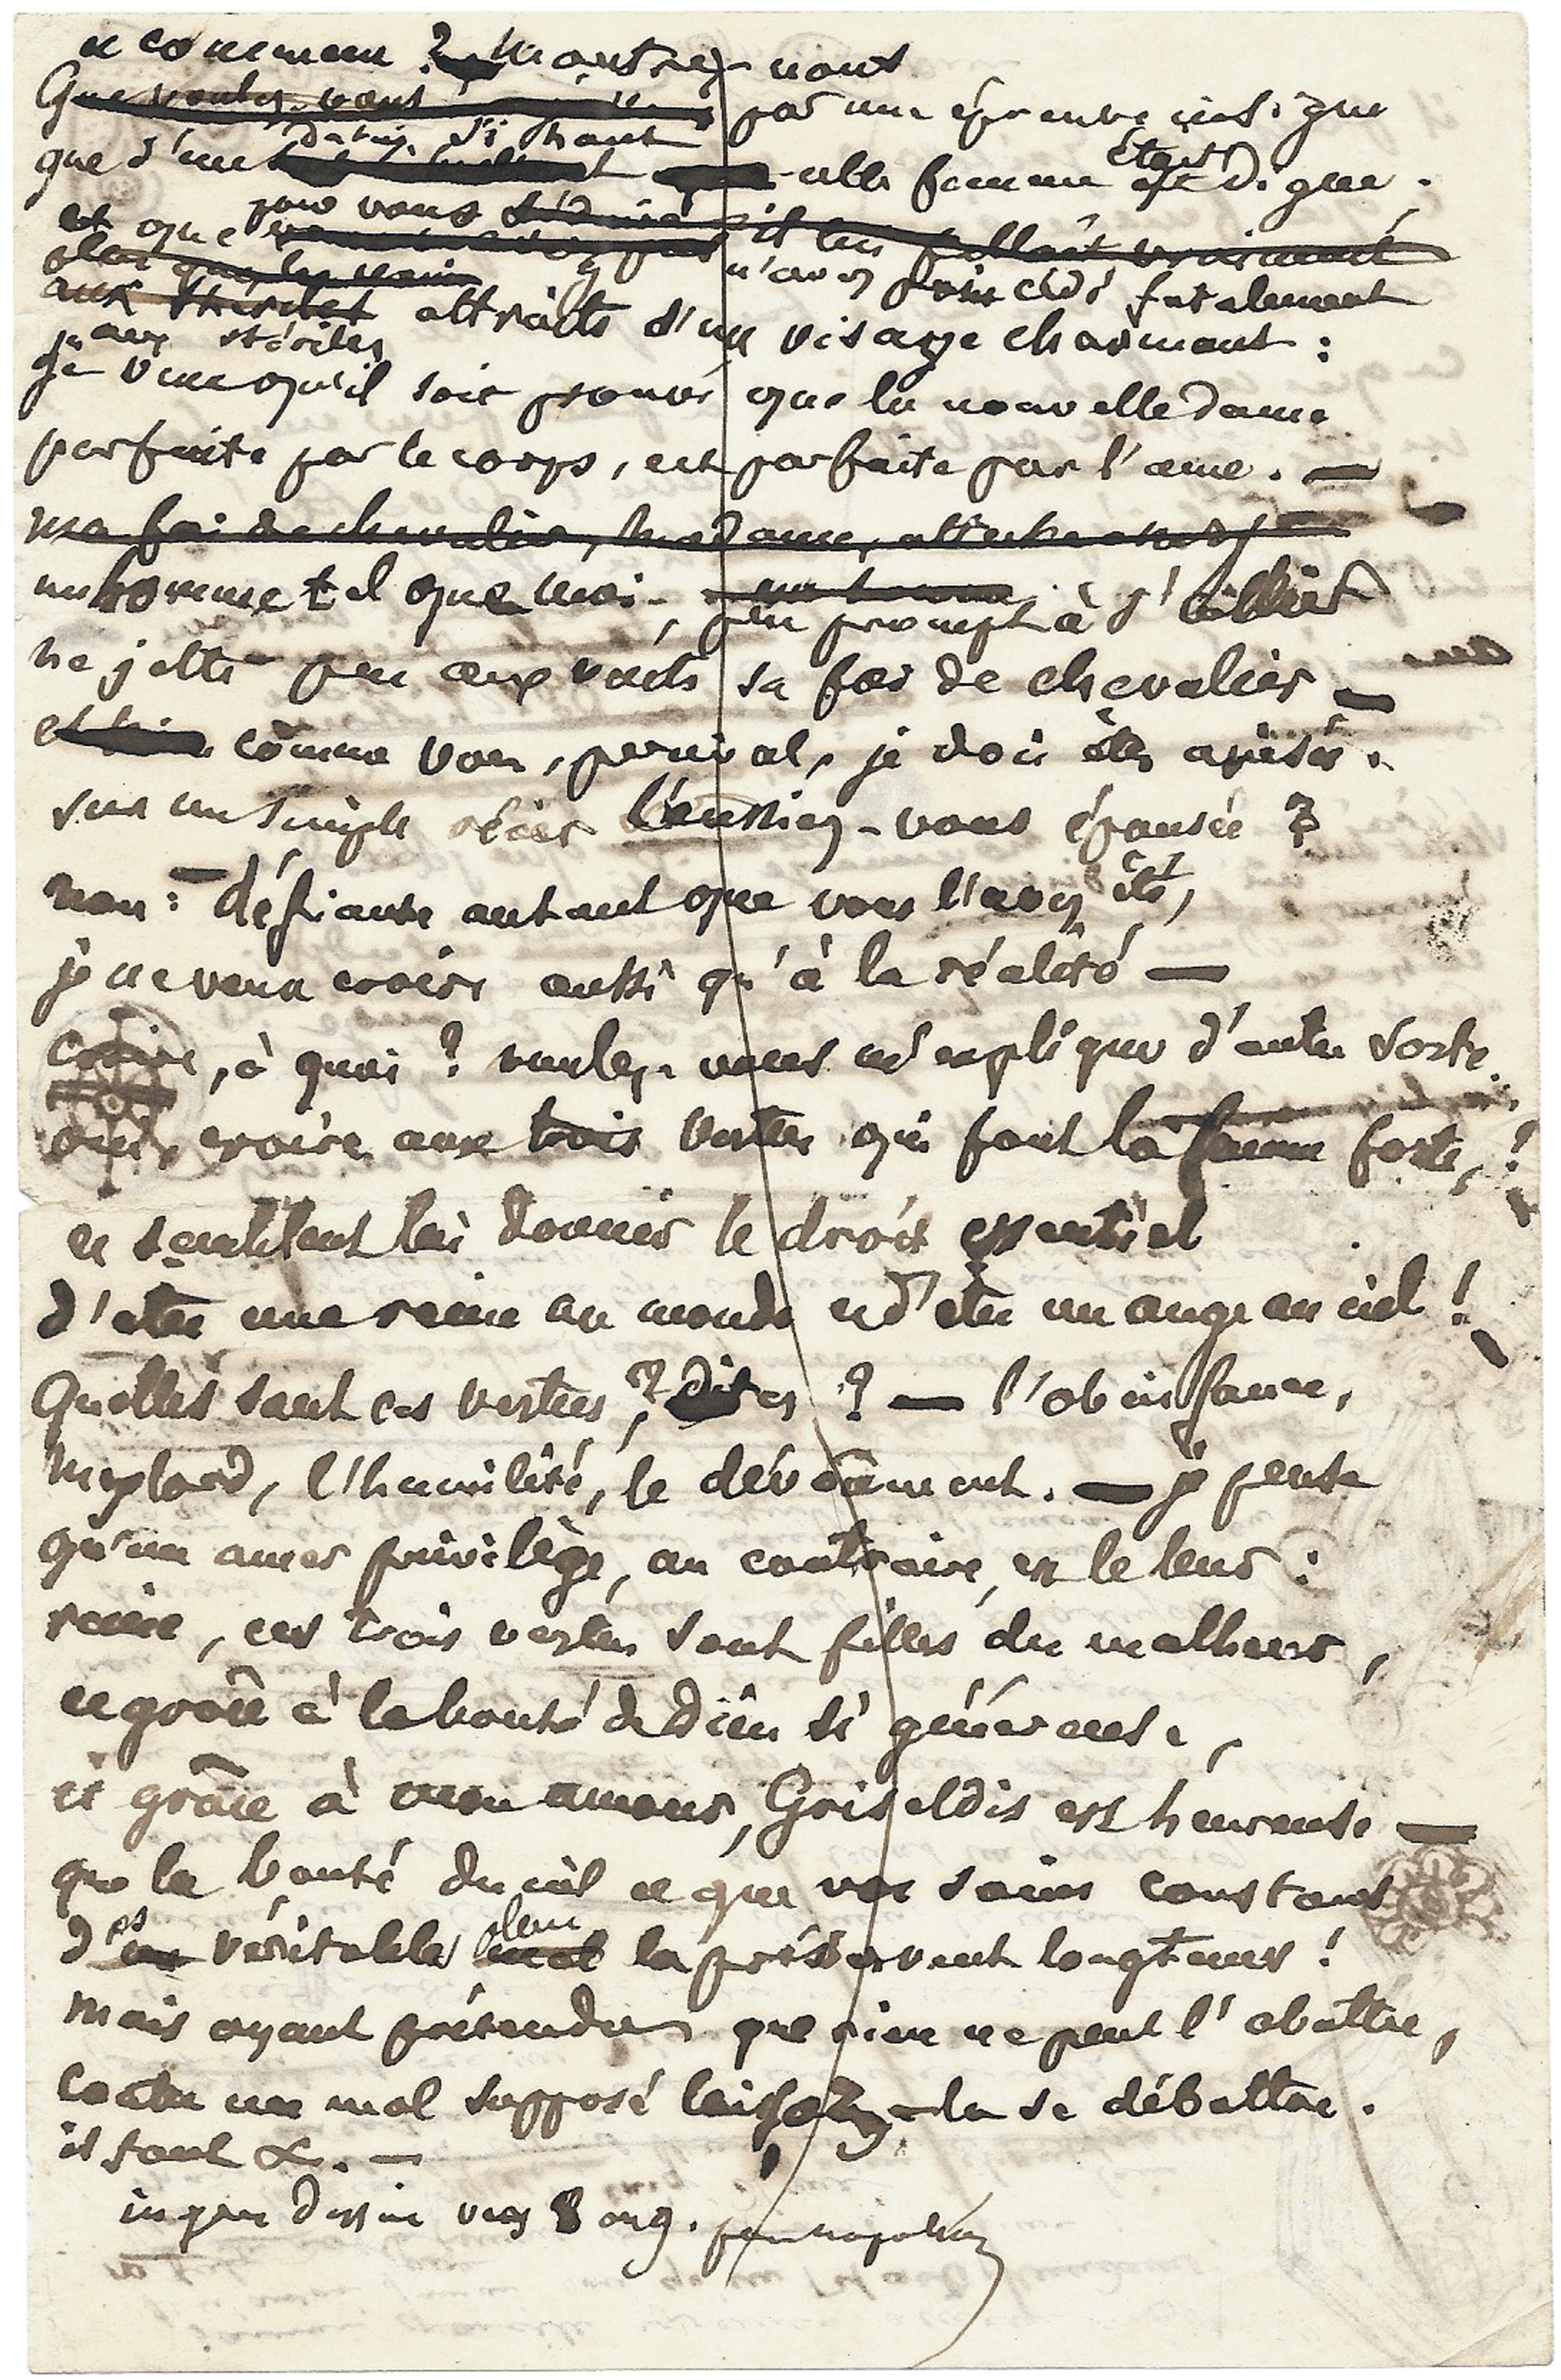 et comment ? Montrez-nous
Que voulez-vous par une épreuve insigne
d'un si haut
que d'une telle femme était est digne.
pour vous séduire il lui fallait vraiment
et que n'avez point cédé fatalement
aux stériles attraits d'un visage charmant :
aux stériles
je veux qu'il soit prouvé que la nouvelle dame
parfaite par le corps, est parfaite par l'ame. —
ma foi de chevalier, madame, atteste
un homme tel que moi, peu prompt à s'allier
ne jette pas aux vents sa foi de chevalier —
comme vous, perceval, je dois être avisée.
sur un simple récit l'eussiez-vous épousée ?
non : — défiante autant que vous l'avez été,
je ne veux croire aussi qu'à la réalité —
croire, à quoi ? veuillez-vous m'expliquer d'autre sorte.
oui, croire aux trois vertus qui font la femme forte, !
et semblent lui donner le droit essentiel
d'etre une reine au monde et d'etre un ange au ciel !
Quelles sont ces vertus, ? dites ? — l'obéissance,
Mylord, l'humilité, le dévoûment. — je pense
qu'un amer privilège, au contraire, est le leur :
reine, ces trois vertus sont filles du malheur,
et grâce à la bonté de Dieu si généreuse,
et grâce à mon amour, Griseldis est heureuse —
que la bonté du ciel et que vos soins constans
des
d'un véritable mal la préservent longtems !
mais ayant prétendu que rien ne peut l'abattre,
contre un mal supposé laissez-la se débattre.
il faut &. —